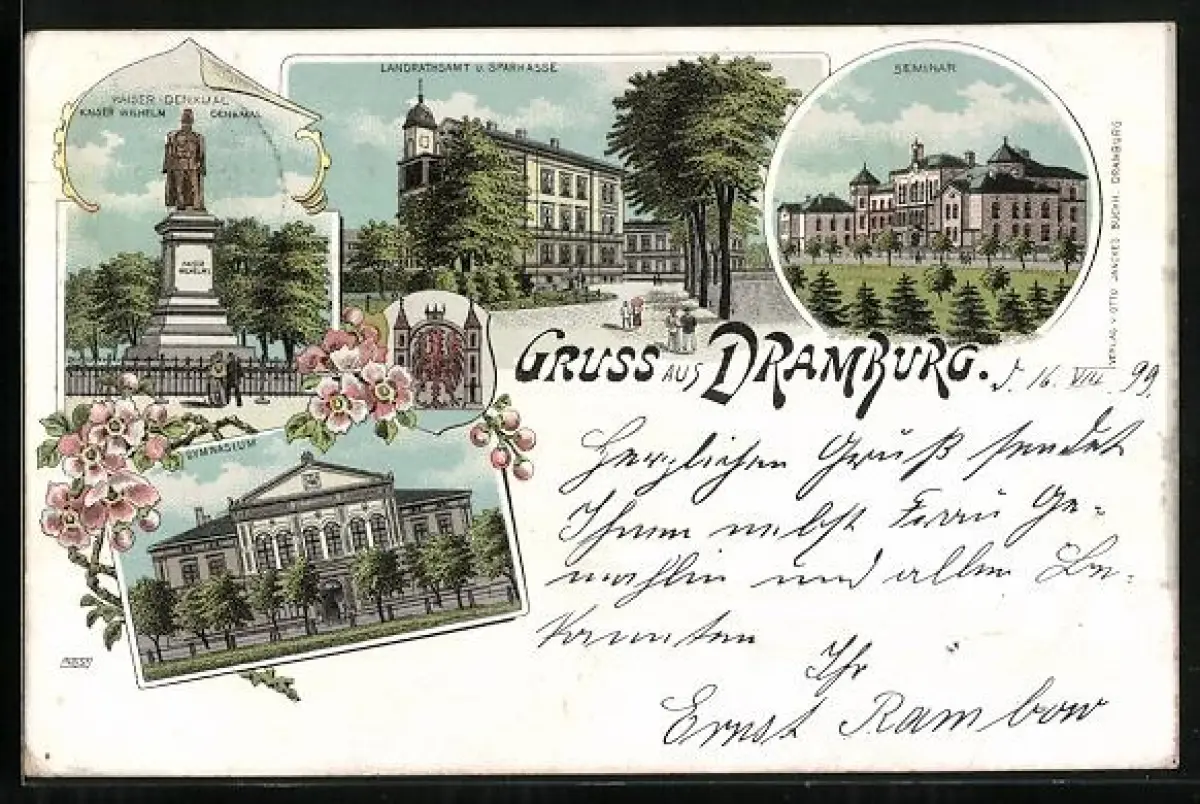 KAISER-DENKMAL
KAISER WILHELM DENKMAL
KAISER
WILHELM I.
LANDRATHSAMT U. SPARKASSE
SEMINAR
VERLAG V. OTTO JANCKES BUCHH. DRAMBURG
GRUSS AUS DRAMBURG.
d. 16. VIII. 99.
GYMNASIUM
Herzlichen Gruß sendet
Ihnen nebst Frau Ge-
mahlin und allen Be-
kannten
Ihr
Ernst Rambow